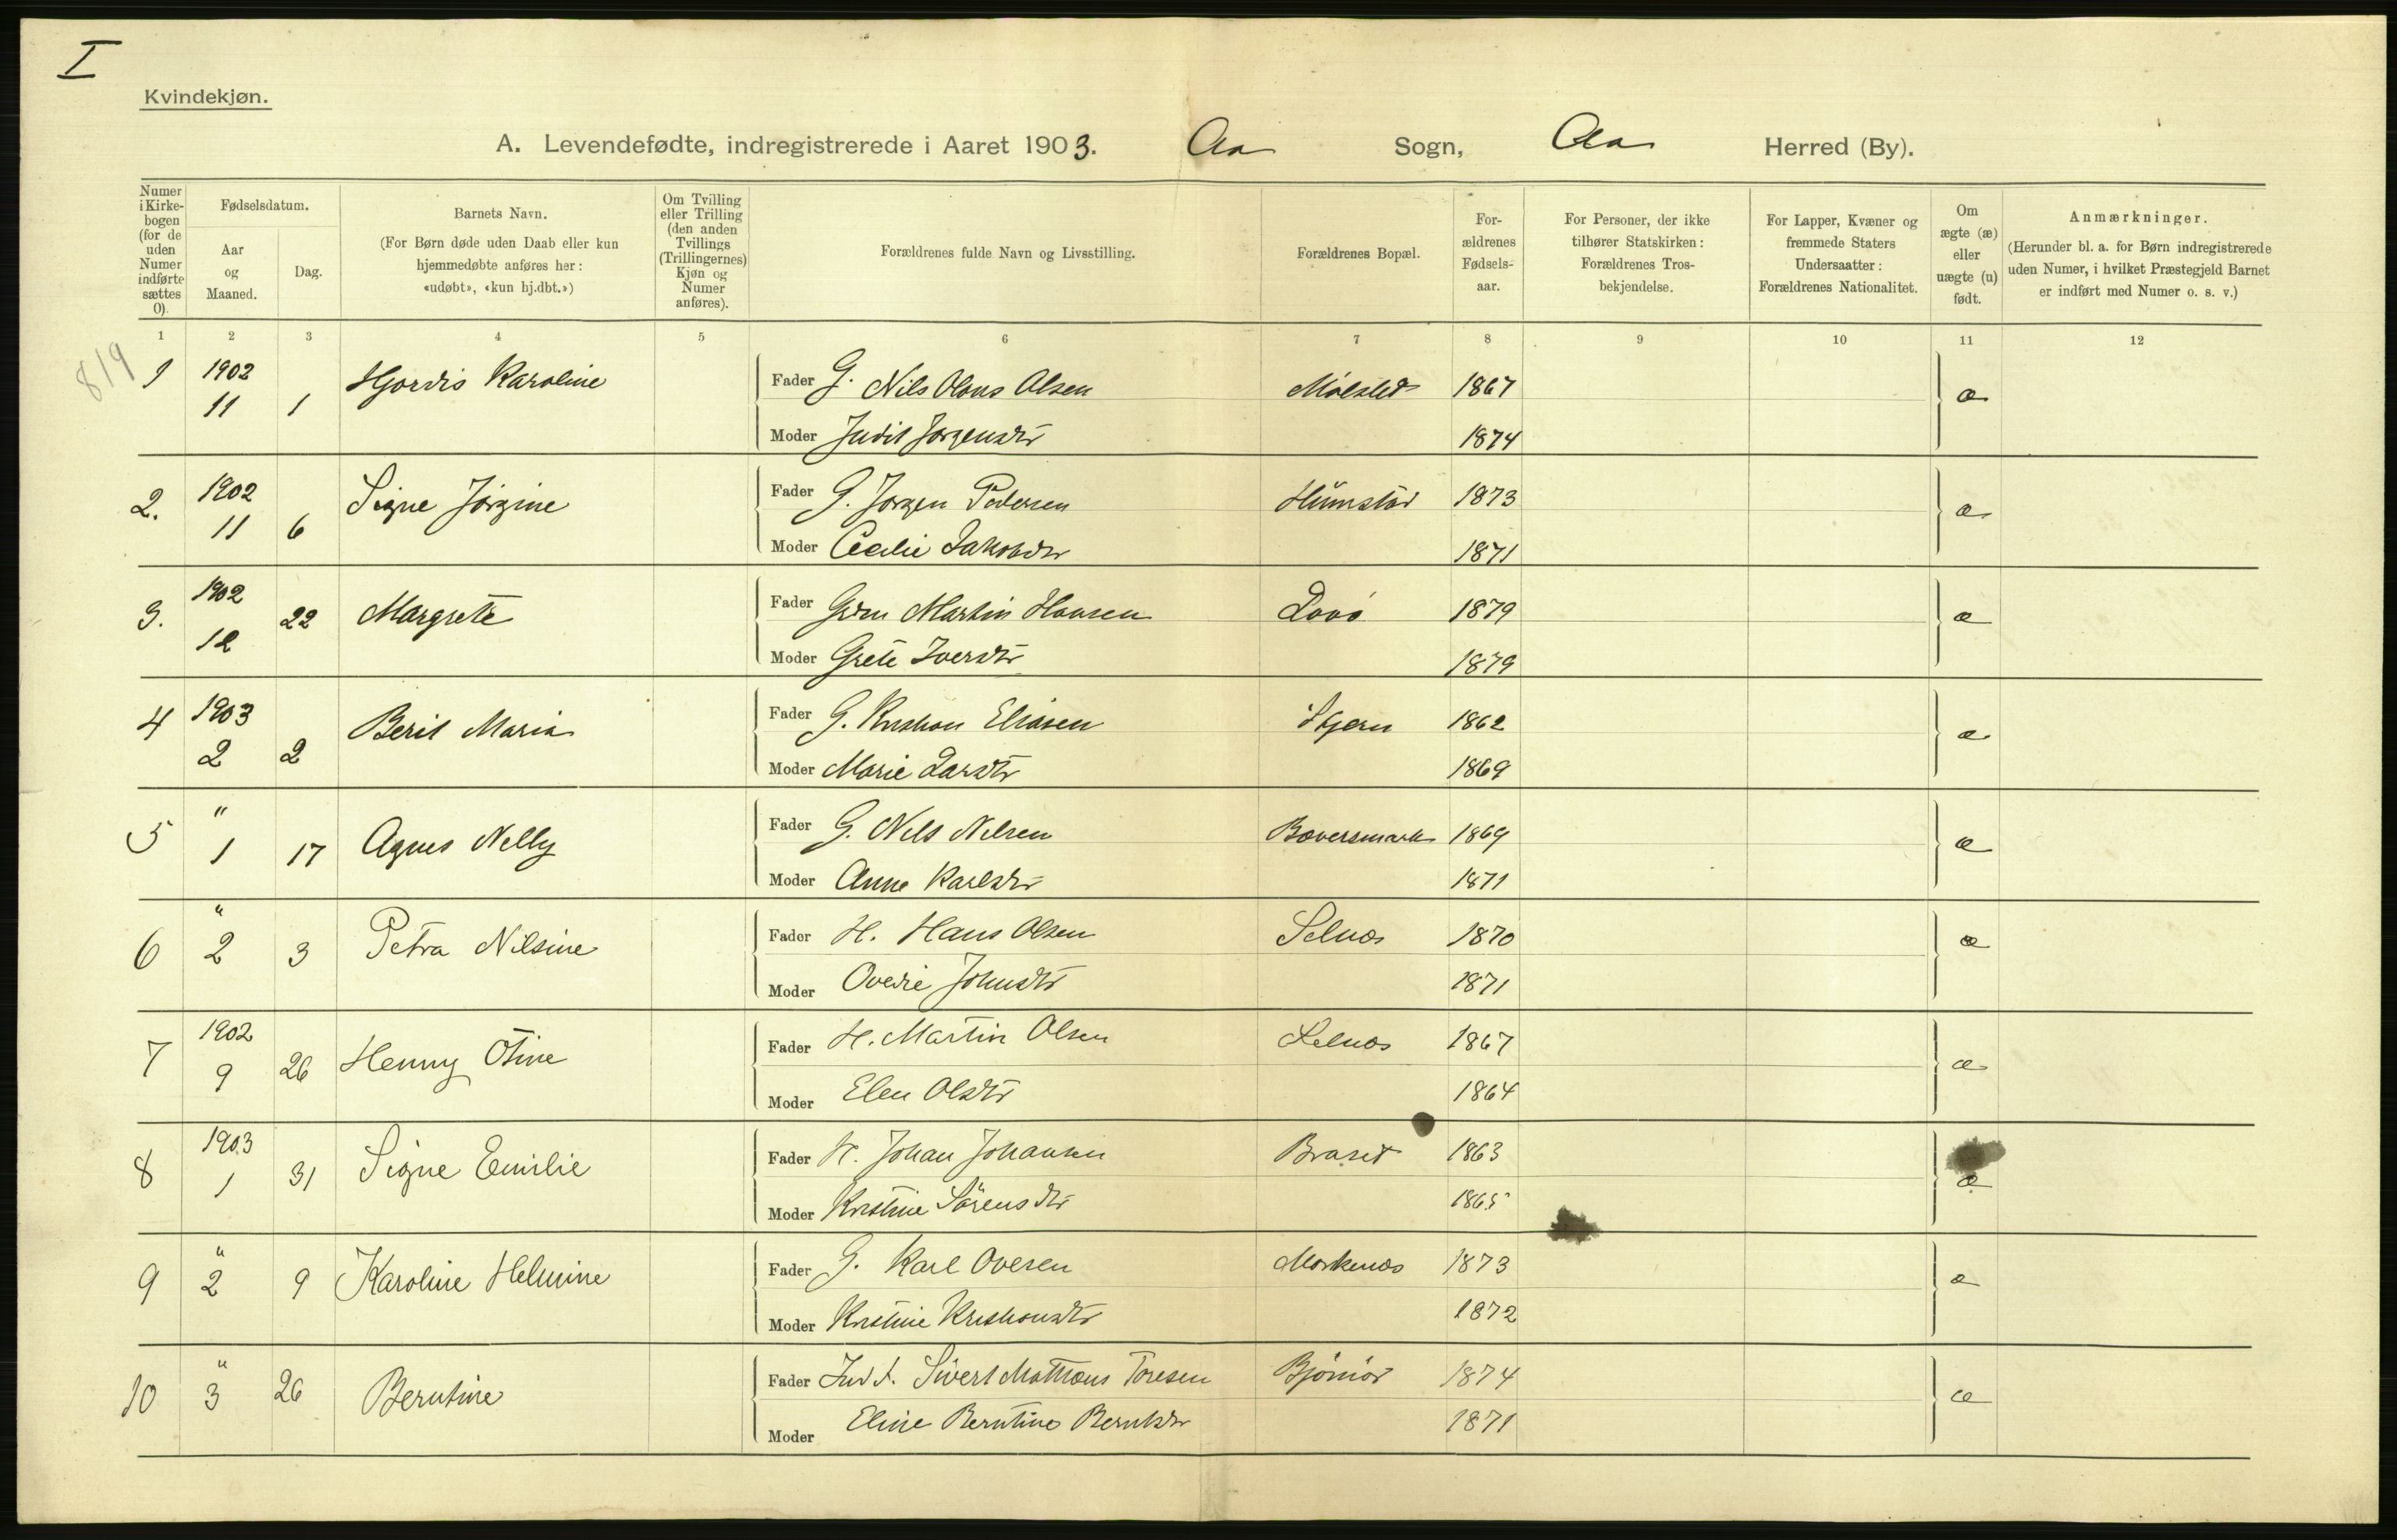 I
Kvindekjøn.
A. Levendefødte, indregistrerede i Aaret 1903. Aa Sogn, Aa Herred (By).
Numer i Kirkebogen (for de uden Numer indførte sættes 0).
Fødselsdatum.
Aar og Maaned.
Dag.
Barnets Navn.
(For Børn døde uden Daab eller kun hjemmedøbte anføres her: «udøbt», «kun hj.dbt.»)
Om Tvilling eller Trilling (den anden Tvillings (Trillingernes) Kjøn og Numer anføres).
Forældrenes fulde Navn og Livsstilling.
Forældrenes Bopæl.
Forældrenes Fødselsaar.
For Personer, der ikke tilhører Statskirken: Forældrenes Trosbekjendelse.
For Lapper, Kvæner og fremmede Staters Undersaatter: Forældrenes Nationalitet.
Om ægte (æ) eller uægte (u) født.
Anmærkninger.
(Herunder bl. a. for Børn indregistrerede uden Numer, i hvilket Præstegjeld Barnet er indført med Numer o. s. v.)
1 2 3 4 5 6 7 8 9 10 11 12
819
1 1902 11 1 Hjordis Karoline Fader G. Nils Olaus Olsen 1867 æ
Moder Judit Jørgensdtr 1874
2. 1902 11 6 Signe Jørgine Fader G. Jørgen Pedersen 1873 æ
Moder Cecilie Jakobdtr 1871
3. 1902 12 22 Margrete Fader Grdm Martin Hansen 1879 æ
Moder Grete Iversdtr 1879
4 1903 2 2 Berit Maria Fader G. Kristian Eliasen 1862 æ
Moder Marie Larsdtr 1869
5 " 1 17 Agnes Nelly Fader G. Nils Nilsen Bøversmark 1869 æ
Moder Anne Karlsdtr 1871
6 " 2 3 Petra Nilsine Fader H. Hans Olsen Selnæs 1870 æ
Moder Ovedie Johnsdtr 1871
7 1902 9 26 Henny Otine Fader H. Martin Olsen Selnæs 1867 æ
Moder Elen Olsdtr 1864
8 1903 1 31 Signe Emilie Fader H. Johan Johansen Braset 1863 æ
Moder Kristine Sørensdtr 1865
9 " 2 9 Karoline Helmine Fader G. Karl Ovesen Morkenæs 1873 æ
Moder Kristine Kristiansdtr 1872
10 " 3 26 Berntine Fader Inds. Sivert Mathæus Toresen Bjørnør 1874 æ
Moder Eline Berntine Berntsdtr 1871